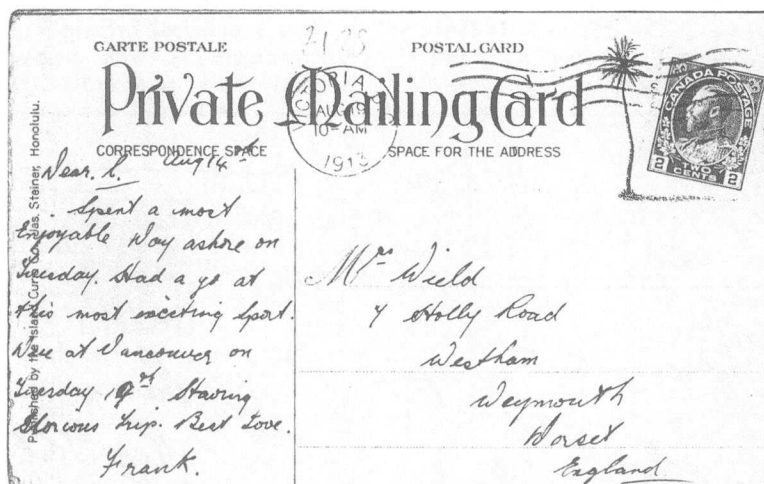 CARTE POSTALE
POSTAL CARD
Private Mailing Card
CORRESPONDENCE SPACE
SPACE FOR THE ADDRESS
VICTORIA
AUG 19
10 - AM
1913
CANADA POSTAGE
2 TWO CENTS 2
Published by the Island Curio Co. Jas. Steiner, Honolulu.
Aug 14th
Dear
Spent a most
Enjoyable Day ashore on
Tuesday. Had a go at
this most exciting Sport.
Due at Vancouver on
Tuesday 19th Having
Glorious Trip. Best Love.
Frank.
Mrs Wield
7 Holly Road
Westham
Weymouth
Dorset
England